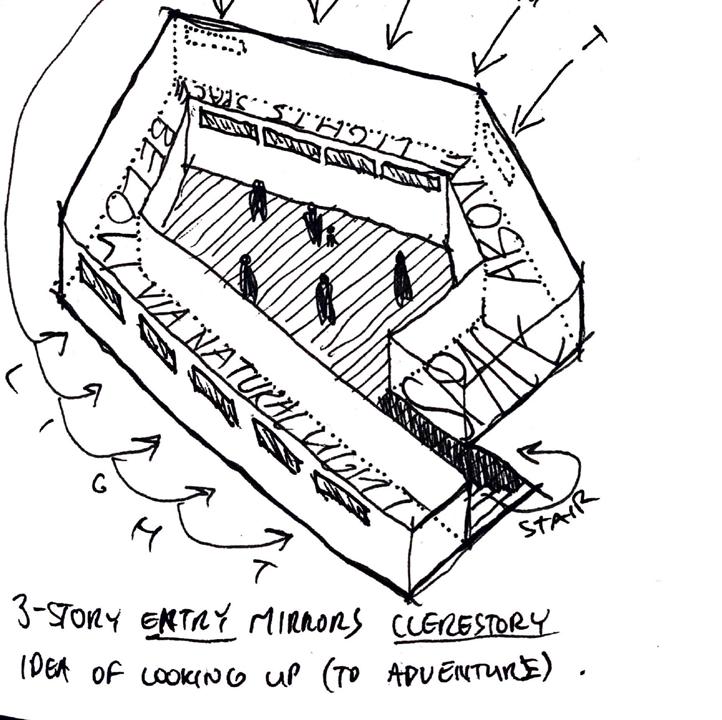 ABOVE
LIGHTS SPACE
BELOW
VIA NATURAL LIGHT
L I G H T
T
STAIR
3-STORY ENTRY MIRRORS CLERESTORY
IDEA OF LOOKING UP (TO ADVENTURE).